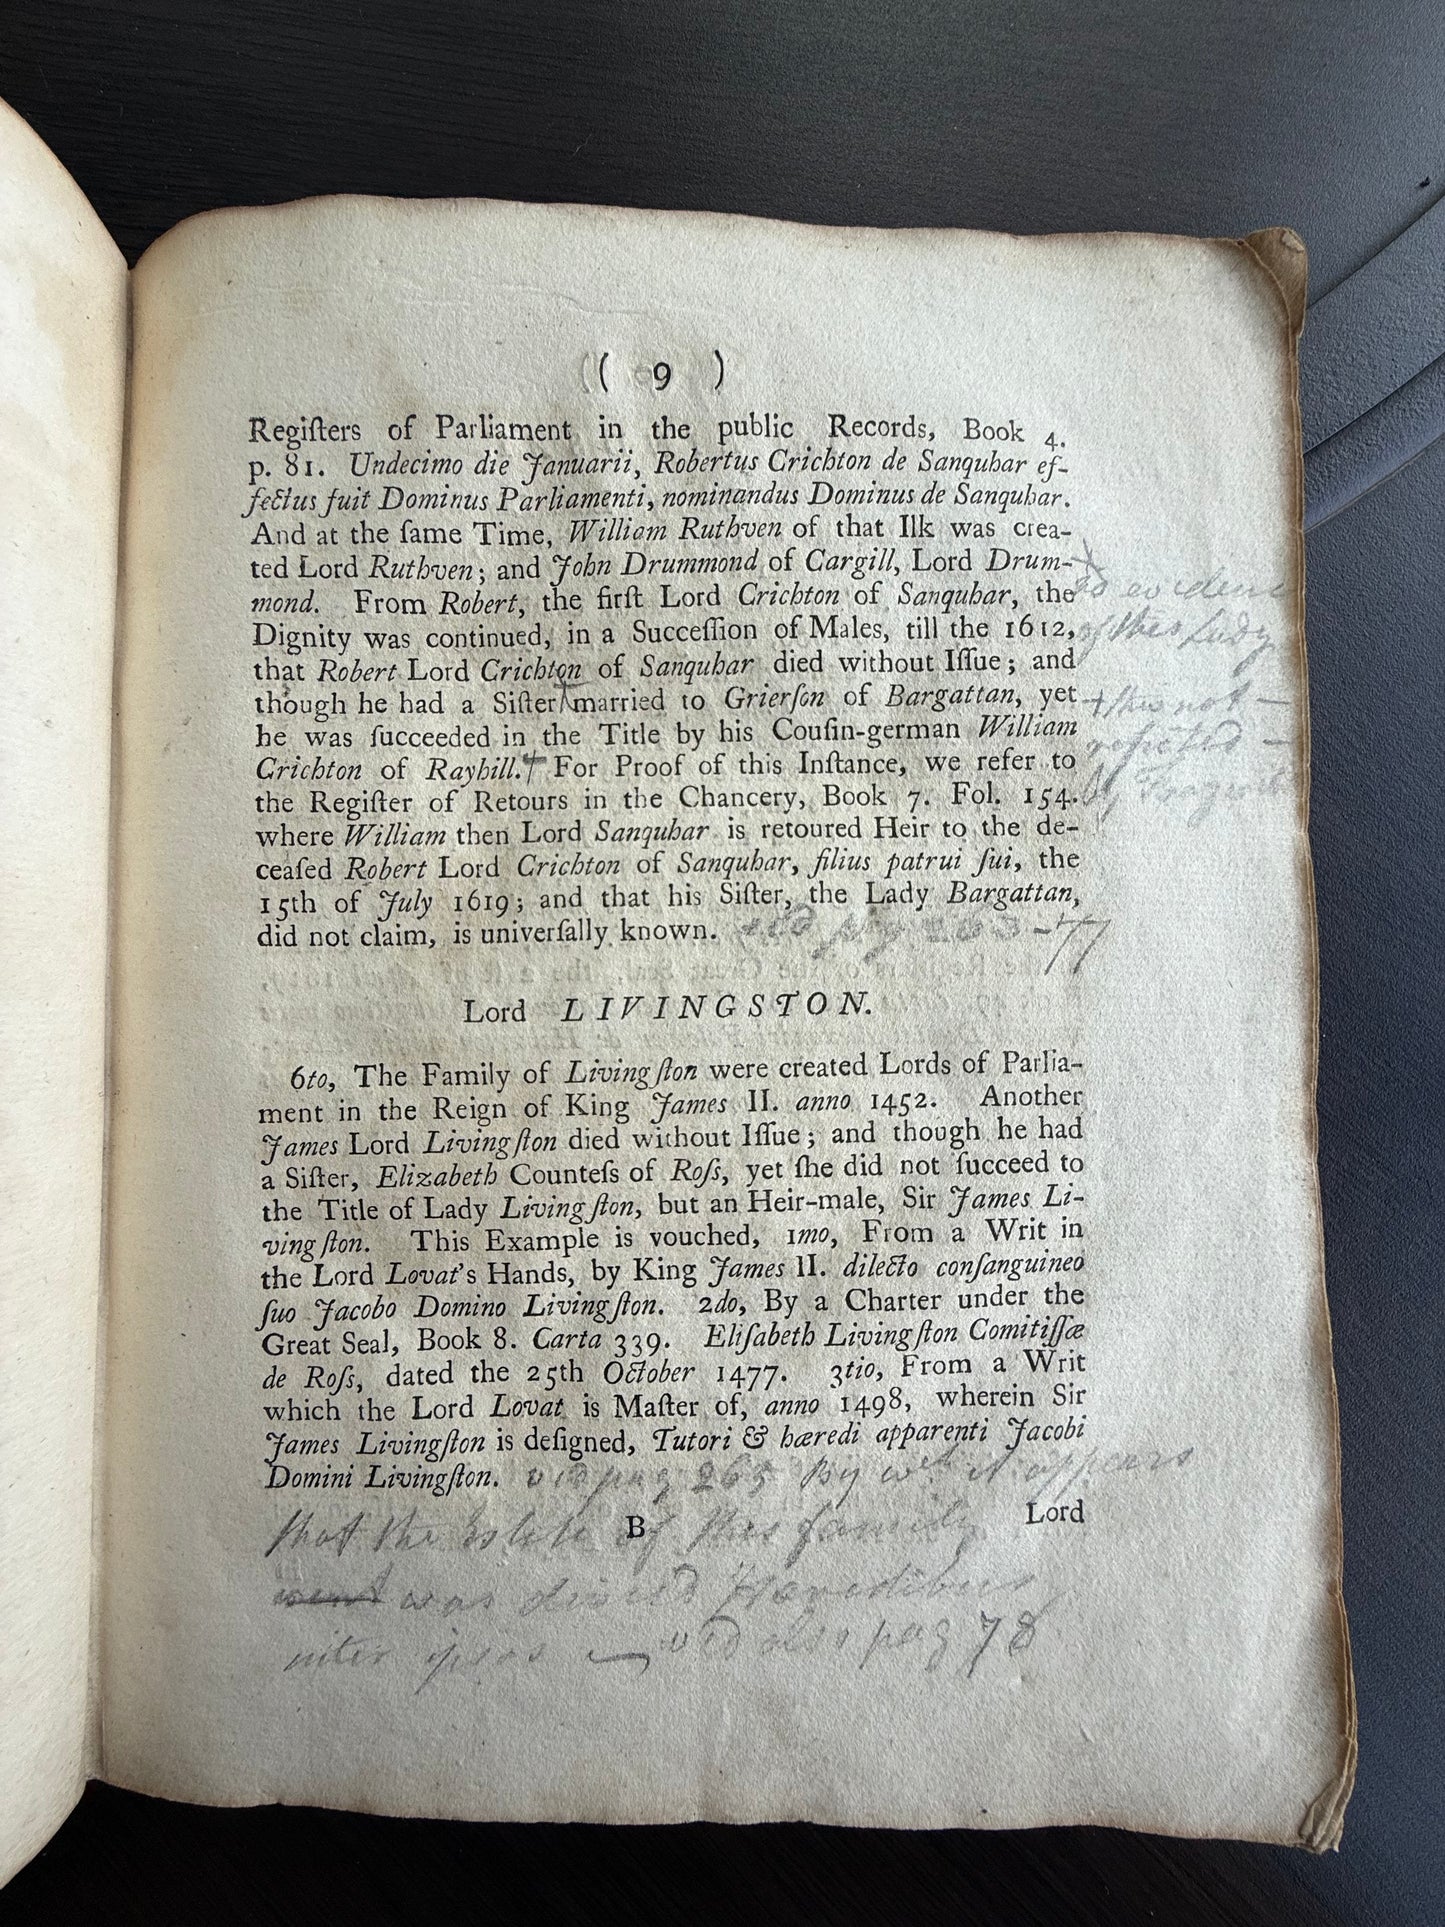 ( 9 )
Regiſters of Parliament in the public Records, Book 4.
p. 81. Undecimo die Januarii, Robertus Crichton de Sanquhar ef-
fectus fuit Dominus Parliamenti, nominandus Dominus de Sanquhar.
And at the ſame Time, William Ruthven of that Ilk was crea-
ted Lord Ruthven; and John Drummond of Cargill, Lord Drum-
mond. From Robert, the firſt Lord Crichton of Sanquhar, the
Dignity was continued, in a Succeſſion of Males, till the 1612,
that Robert Lord Crichton of Sanquhar died without Iſſue; and
though he had a Siſter married to Grierſon of Bargattan, yet
he was ſucceeded in the Title by his Couſin-german William
Crichton of Rayhill.† For Proof of this Inſtance, we refer to
the Regiſter of Retours in the Chancery, Book 7. Fol. 154.
where William then Lord Sanquhar is retoured Heir to the de-
ceaſed Robert Lord Crichton of Sanquhar, filius patrui ſui, the
15th of July 1619; and that his Siſter, the Lady Bargattan,
did not claim, is univerſally known.
evidence
of this Lady
+ this not
77
Lord LIVINGSTON.
6to, The Family of Livingſton were created Lords of Parlia-
ment in the Reign of King James II. anno 1452. Another
James Lord Livingſton died without Iſſue; and though he had
a Siſter, Elizabeth Counteſs of Roſs, yet ſhe did not ſucceed to
the Title of Lady Livingſton, but an Heir-male, Sir James Li-
vingſton. This Example is vouched, 1mo, From a Writ in
the Lord Lovat's Hands, by King James II. dilecto conſanguineo
ſuo Jacobo Domino Livingſton. 2do, By a Charter under the
Great Seal, Book 8. Carta 339. Eliſabeth Livingſton Comitiſſæ
de Roſs, dated the 25th October 1477. 3tio, From a Writ
which the Lord Lovat is Maſter of, anno 1498, wherein Sir
James Livingſton is deſigned, Tutori & hæredi apparenti Jacobi
Domini Livingſton. vid pag 265 By wch it appears
that the Estate of this family
B Lord
was divised Haredibus
inter ipsos vid also pag 78